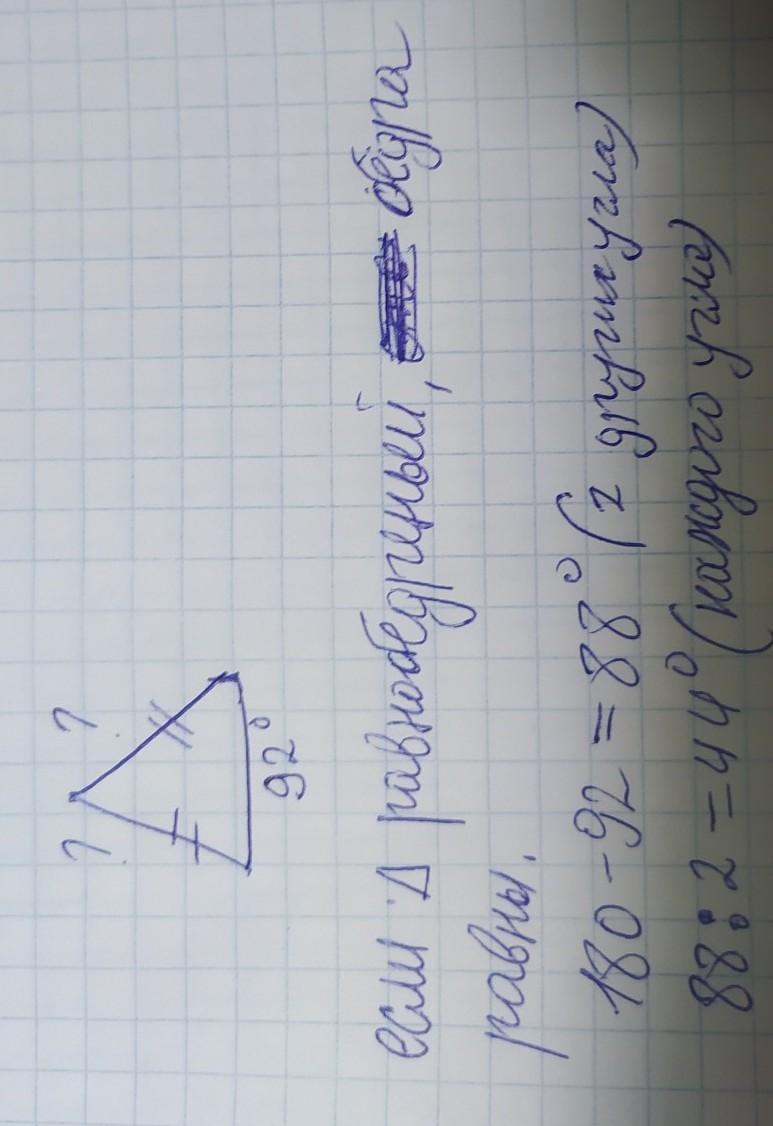 ? ?
92°
если Δ равнобедренный, бёдра
равны.
180 - 92 = 88° (2 других угла)
88 : 2 = 44° (каждого угла)